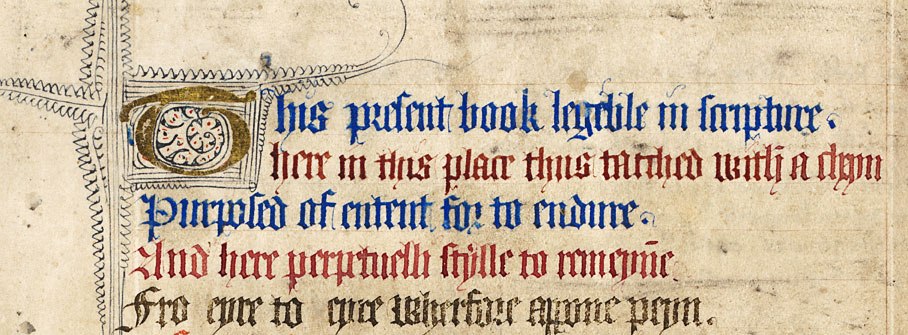 This present book legeble in scripture.
here in this place thus tacched with a cheyn
Purposed of entent for to endure.
And here perpetuelli stylle to remeyne.
Fro eyre to eyre wherfore appone peyn.